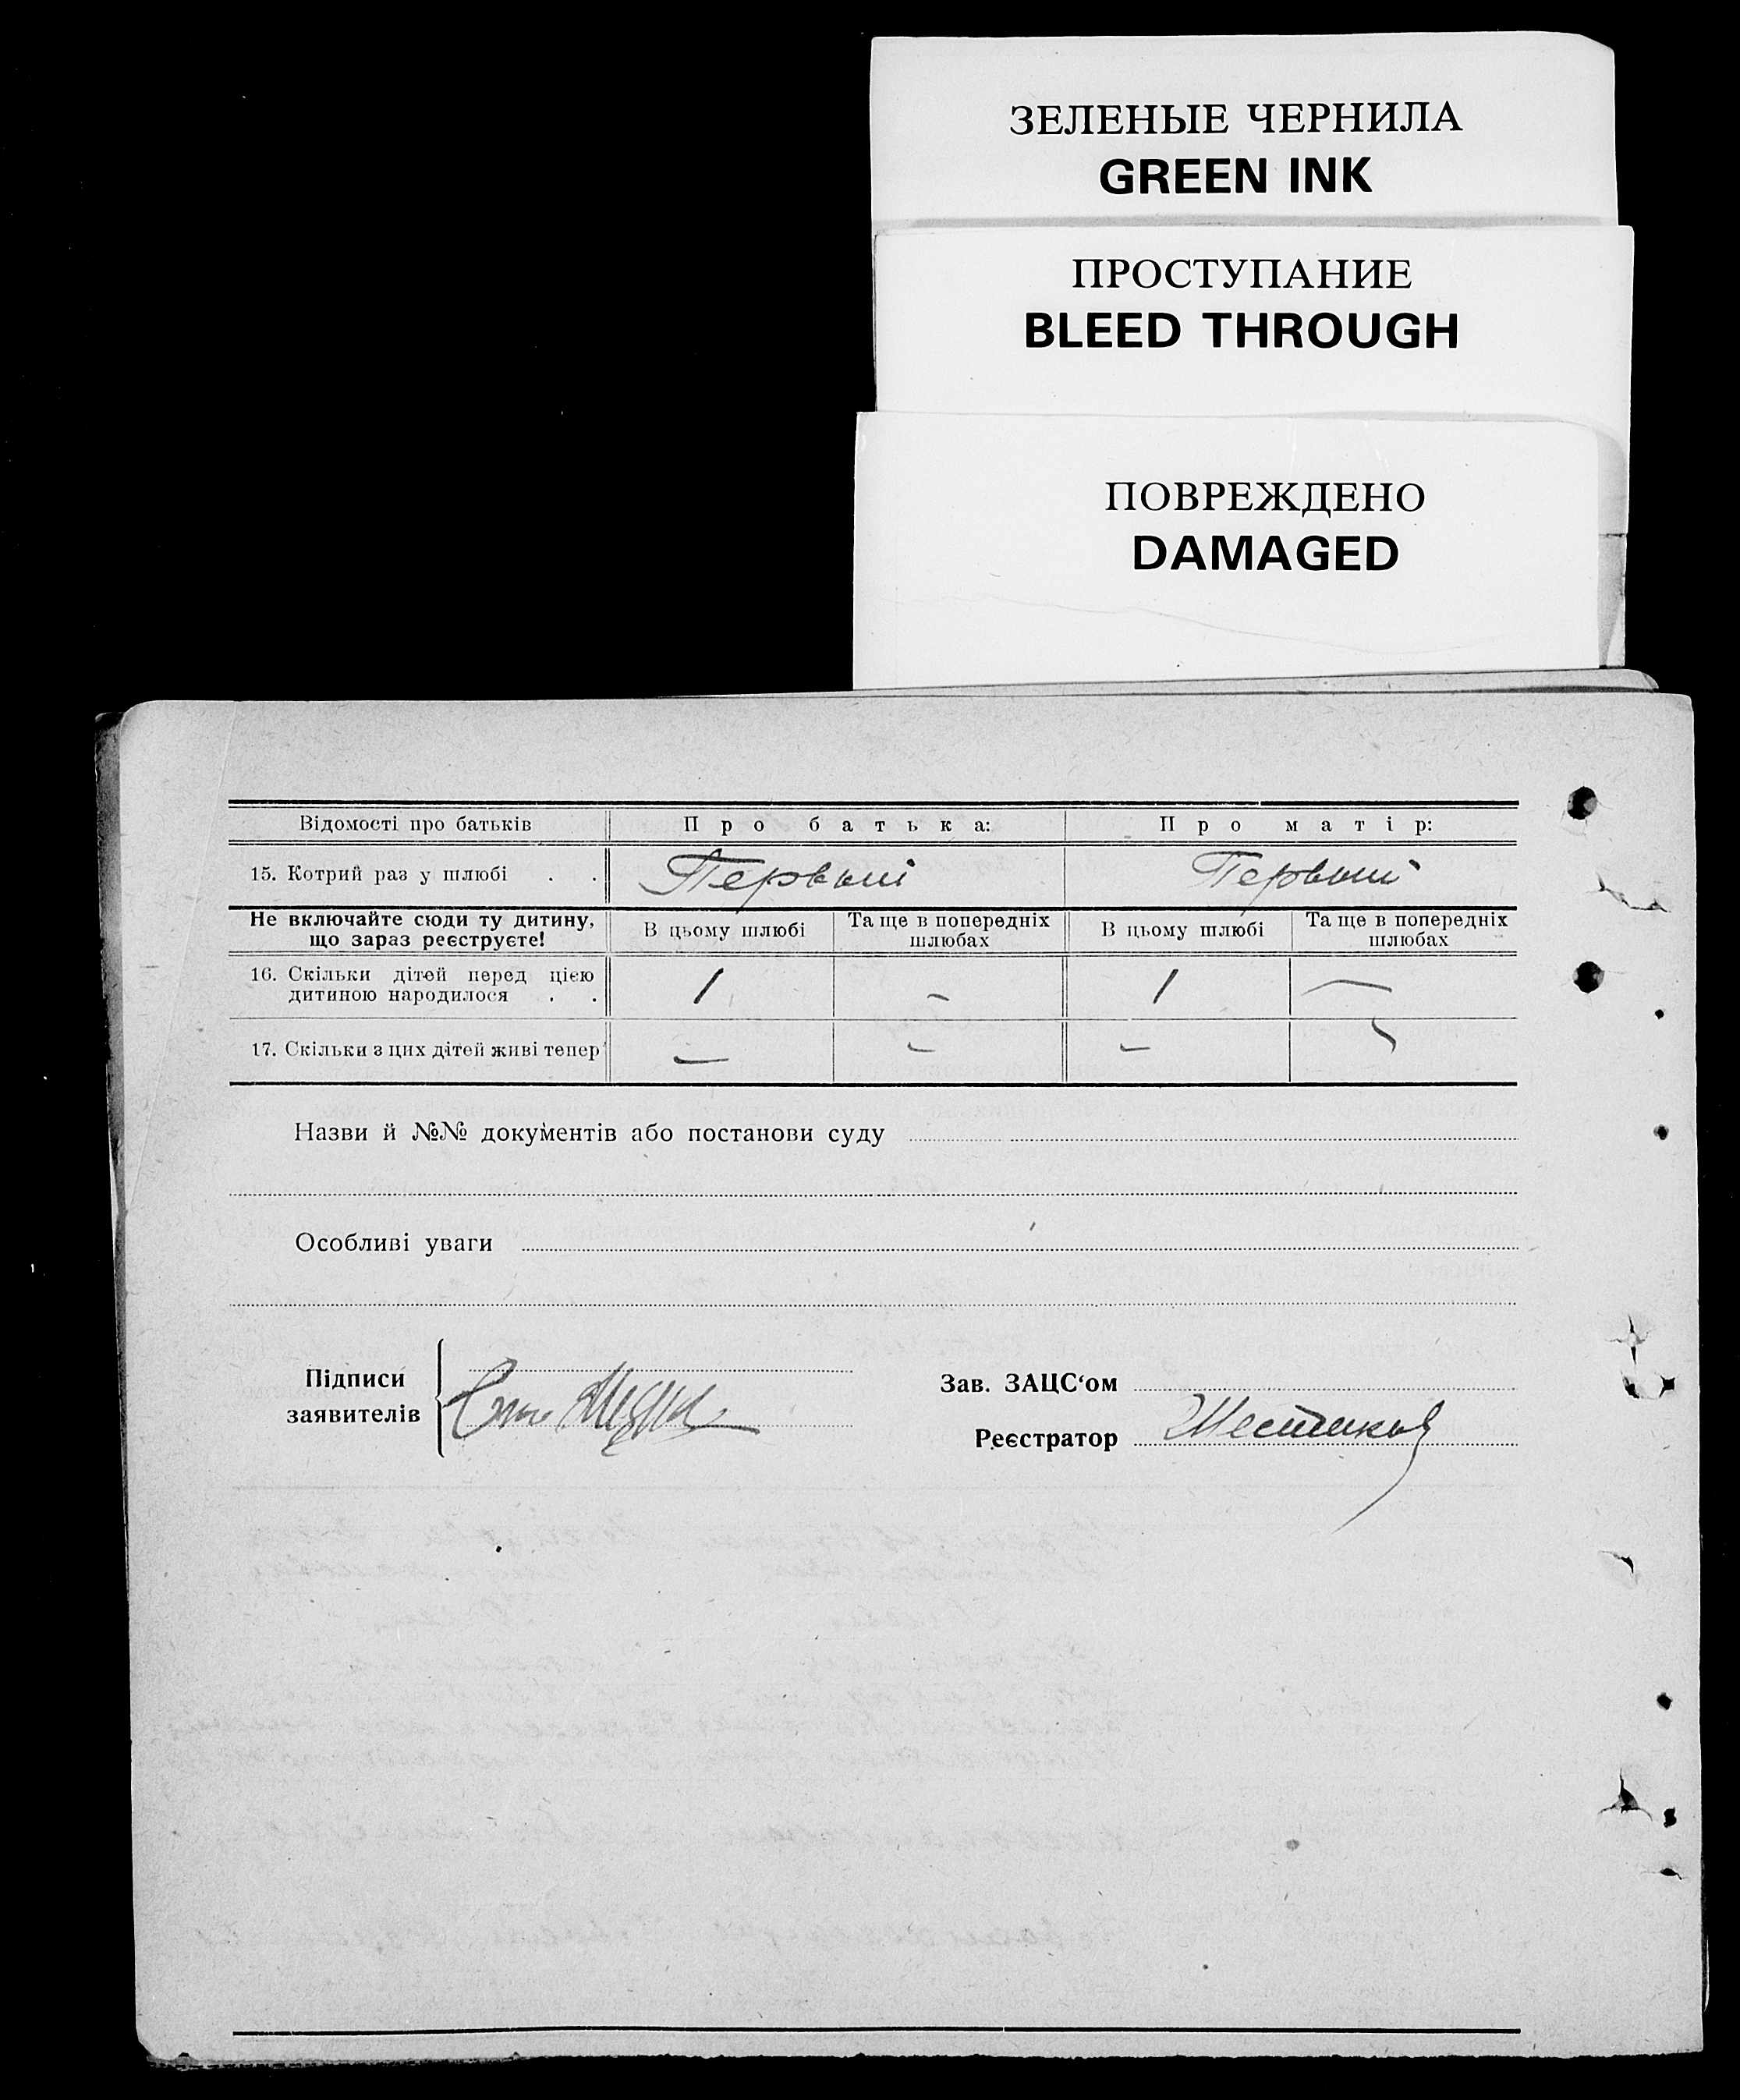 ЗЕЛЕНЫЕ ЧЕРНИЛА
GREEN INK
ПРОСТУПАНИЕ
BLEED THROUGH
ПОВРЕЖДЕНО
DAMAGED
Відомості про батьків Про батька: Про матір:
15. Котрий раз у шлюбі . . Первый Первый
Не включайте сюди ту дитину, що зараз реєструєте! В цьому шлюбі Та ще в попередніх шлюбах В цьому шлюбі Та ще в попередніх шлюбах
16. Скільки дітей перед цією дитиною народилося . . 1 – 1 –
17. Скільки з цих дітей живі тепер – – –
Назви й №№ документів або постанови суду
Особливі уваги
Підписи заявителів
Зав. ЗАЦС‘ом
Реєстратор